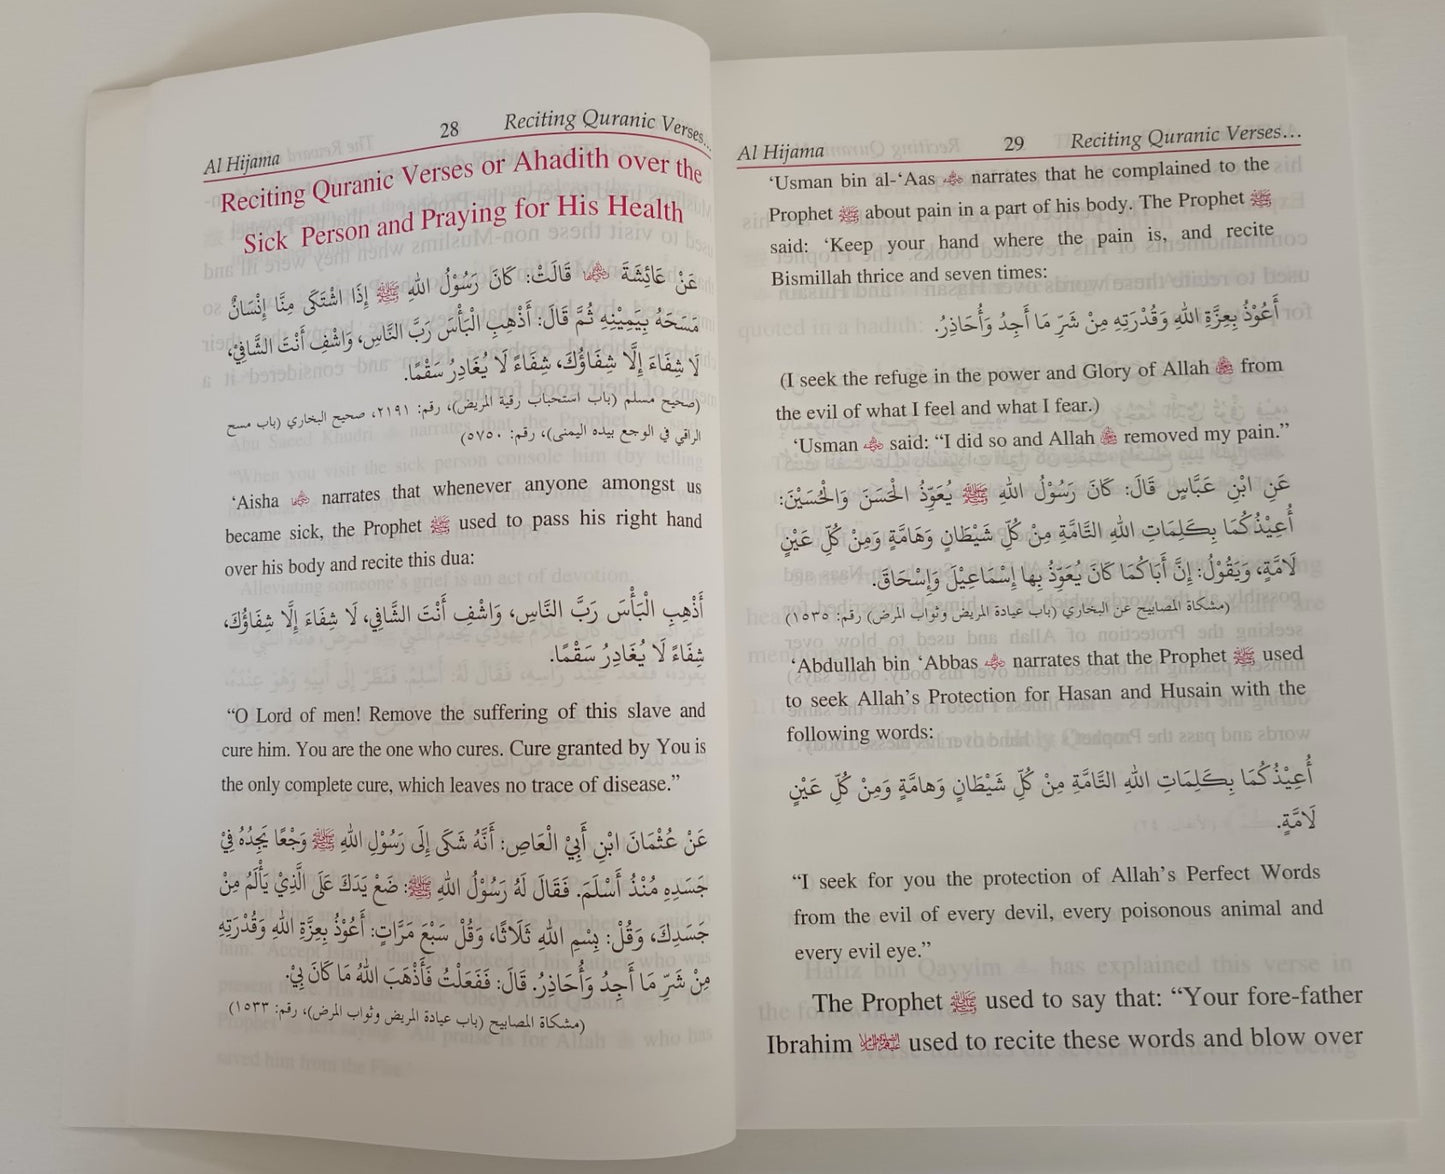 Al Hijama 28 Reciting Quranic Verses...
Reciting Quranic Verses or Ahadith over the
Sick Person and Praying for His Health
عَنْ عَائِشَةَ ؓ قَالَتْ: كَانَ رَسُوْلُ اللهِ ﷺ إِذَا اشْتَكَى مِنَّا إِنْسَانٌ
مَسَحَهُ بِيَمِيْنِهِ ثُمَّ قَالَ: أَذْهِبِ الْبَأْسَ رَبَّ النَّاسِ، وَاشْفِ أَنْتَ الشَّافِيْ،
لَا شِفَاءَ إِلَّا شِفَاؤُكَ، شِفَاءً لَا يُغَادِرُ سَقْمًا.
(صحيح مسلم (باب استحباب رقية المريض)، رقم: ٢١٩١، صحيح البخاري (باب مسح
الراقي في الوجع بيده اليمنى)، رقم: ٥٧٥٠)
‘Aisha ؓ narrates that whenever anyone amongst us
became sick, the Prophet ﷺ used to pass his right hand
over his body and recite this dua:
أَذْهِبِ الْبَأْسَ رَبَّ النَّاسِ، وَاشْفِ أَنْتَ الشَّافِي، لَا شِفَاءَ إِلَّا شِفَاؤُكَ،
شِفَاءً لَا يُغَادِرُ سَقْمًا.
“O Lord of men! Remove the suffering of this slave and
cure him. You are the one who cures. Cure granted by You is
the only complete cure, which leaves no trace of disease.”
عَنْ عُثْمَانَ ابْنِ أَبِيْ الْعَاصِ: أَنَّهُ شَكَى إِلَى رَسُوْلِ اللهِ ﷺ وَجْعًا يَجِدُهُ فِيْ
جَسَدِهِ مُنْذُ أَسْلَمَ. فَقَالَ لَهُ رَسُوْلُ اللهِ ﷺ: ضَعْ يَدَكَ عَلَى الَّذِيْ يَأْلَمُ مِنْ
جَسَدِكَ، وَقُلْ: بِسْمِ اللهِ ثَلَاثًا، وَقُلْ سَبْعَ مَرَّاتٍ: أَعُوْذُ بِعِزَّةِ اللهِ وَقُدْرَتِهِ
مِنْ شَرِّ مَا أَجِدُ وَأُحَاذِرُ. قَالَ: فَفَعَلْتُ فَأَذْهَبَ اللهُ مَا كَانَ بِيْ.
(مشكاة المصابيح (باب عيادة المريض وثواب المرض)، رقم: ١٥٣٣)
Al Hijama 29 Reciting Quranic Verses...
‘Usman bin al-‘Aas ؓ narrates that he complained to the
Prophet ﷺ about pain in a part of his body. The Prophet ﷺ
said: ‘Keep your hand where the pain is, and recite
Bismillah thrice and seven times:
أَعُوْذُ بِعِزَّةِ اللهِ وَقُدْرَتِهِ مِنْ شَرِّ مَا أَجِدُ وَأُحَاذِرُ.
(I seek the refuge in the power and Glory of Allah from
the evil of what I feel and what I fear.)
‘Usman ؓ said: “I did so and Allah removed my pain.”
عَنِ ابْنِ عَبَّاسٍ قَالَ: كَانَ رَسُوْلُ اللهِ ﷺ يُعَوِّذُ الْحَسَنَ وَالْحُسَيْنَ:
أُعِيْذُكُمَا بِكَلِمَاتِ اللهِ التَّامَّةِ مِنْ كُلِّ شَيْطَانٍ وَهَامَّةٍ وَمِنْ كُلِّ عَيْنٍ
لَامَّةٍ، وَيَقُوْلُ: إِنَّ أَبَاكُمَا كَانَ يُعَوِّذُ بِها إِسْمَاعِيْلَ وَإِسْحَاقَ.
(مشكاة المصابيح عن البخاري (باب عيادة المريض وثواب المرض) رقم: ١٥٣٥)
‘Abdullah bin ‘Abbas ؓ narrates that the Prophet ﷺ used
to seek Allah’s Protection for Hasan and Husain with the
following words:
أُعِيْذُكُمَا بِكَلِمَاتِ اللهِ التَّامَّةِ مِنْ كُلِّ شَيْطَانٍ وَهامَّةٍ وَمِنْ كُلِّ عَيْنٍ
لَامَّةٍ.
“I seek for you the protection of Allah’s Perfect Words
from the evil of every devil, every poisonous animal and
every evil eye.”
The Prophet ﷺ used to say that: “Your fore-father
Ibrahim used to recite these words and blow over